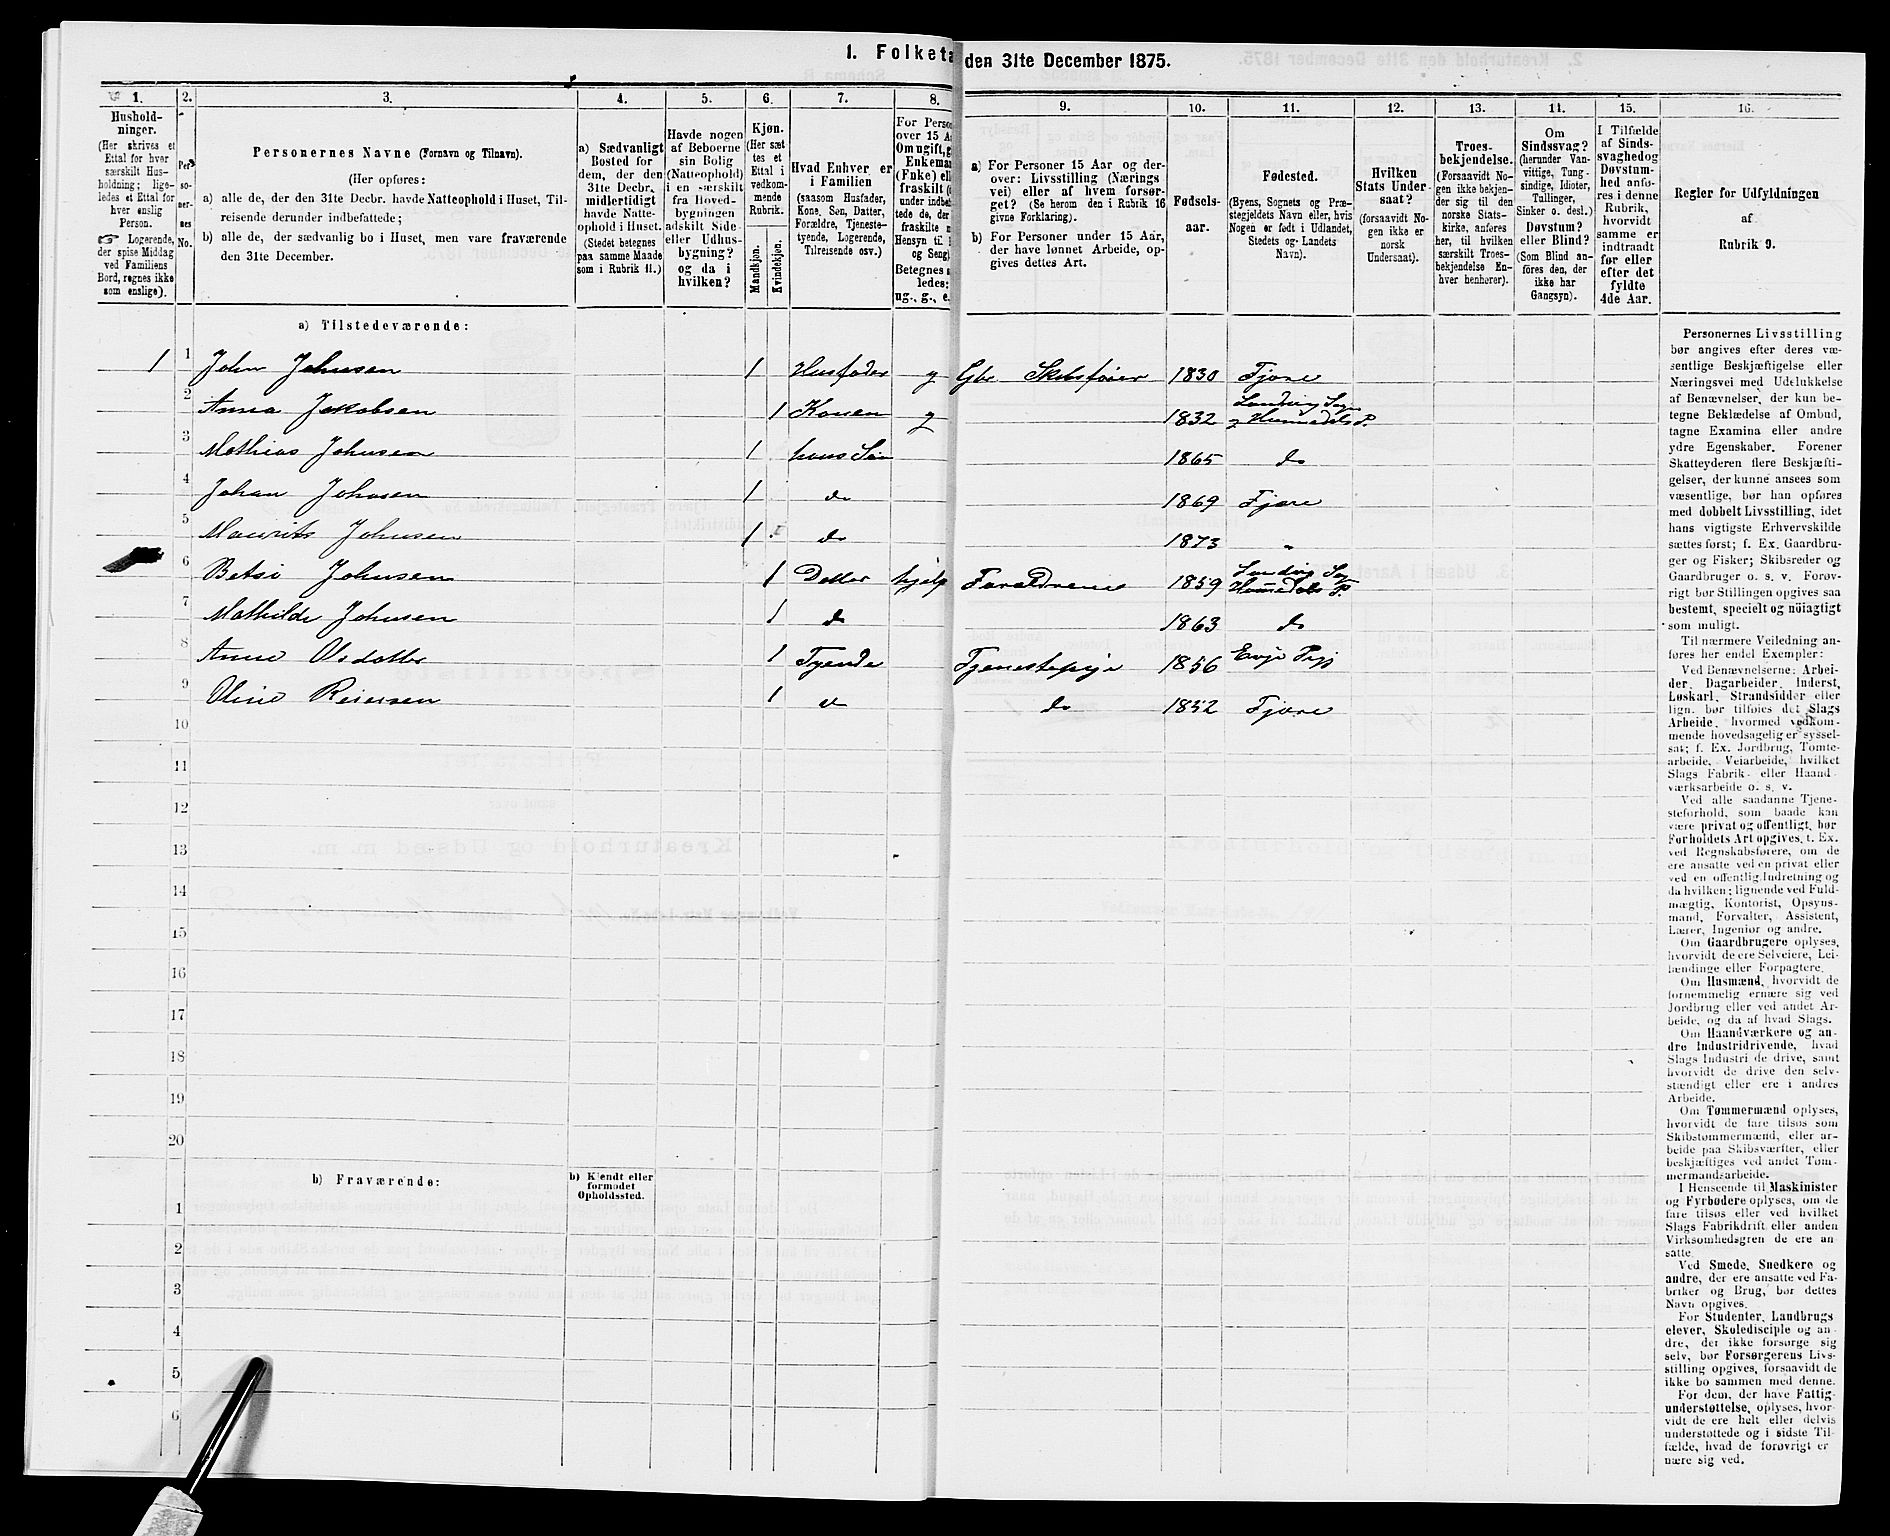 1. Folketa den 31te December 1875.
1. 2. 3. 4. 5. 6. 7. 8. 9. 10. 11. 12. 13. 14. 15. 16.
Hushold-
ninger.
(Her skrives et
Ettal for hver
særskilt Hus-
holdning; lige-
ledes et Ettal for
hver enslig
Person.
☞ Logerende,
der spise Middag
ved Familiens
Bord, regnes ikke
som enslige).
Per-
so-
ner-
nes
No.
Personernes Navne (Fornavn og Tilnavn).
(Her opføres:
a) alle de, der den 31te Decbr. havde Natteophold i Huset, Til-
reisende derunder indbefattede;
b) alle de, der sædvanlig bo i Huset, men vare fraværende
den 31te December.
a) Sædvanligt
Bosted for
dem, der den
31te Decbr.
midlertidigt
havde Natte-
ophold i Huset.
(Stedet betegnes
paa samme Maade
som i Rubrik 11.)
Havde nogen
af Beboerne
sin Bolig
(Natteophold)
i en særskilt
fra Hoved-
bygningen
adskilt Side-
eller Udhus-
bygning?
og da i
hvilken?
Kjøn.
(Her sæt
tes et
Ettal i
vedkom-
mende
Rubrik.
Mandkjøn.
Kvindekjøn.
Hvad Enhver er
i Familien
(saasom Husfader,
Kone, Søn, Datter,
Forældre, Tjeneste-
tyende, Logerende,
Tilreisende osv.)
For Person
over 15 A
Om ugift, g
Enkeman
(Enke) ell
fraskilt (
under indbe
tede de, der
fraskilte
Hensyn til
og Seng)
Betegnes s
ledes:
ug., g., e.
a) For Personer 15 Aar og der-
over: Livsstilling (Nærings
vei) eller af hvem forsør-
get? (Se herom den i Rubrik 16
givne Forklaring).
b) For Personer under 15 Aar,
der have lønnet Arbeide, op-
gives dettes Art.
Fødsels-
aar.
Fødested.
(Byens, Sognets og Præ-
stegjeldets Navn eller, hvis
Nogen er født i Udlandet,
Stedets og Landets
Navn).
Hvilken
Stats Under-
saat?
(forsaavidt No-
gen ikke er
norsk
Undersaat).
Troes-
bekjendelse.
(Forsaavidt No-
gen ikke bekjen-
der sig til den
norske Stats-
kirke, anføres
her, til hvilken
særskilt Troes-
bekjendelse En-
hver henhører).
Om
Sindssvag?
(herunder Van-
vittige, Tung-
sindige, Idioter,
Tullinger,
Sinker o. desl.)
Døvstum?
eller Blind?
(Som Blind an-
føres den, der
ikke har
Gangsyn).
I Tilfælde
af Sinds-
svaghed og
Døvstum-
hed anfø-
res i denne
Rubrik,
hvorvidt
samme er
indtraadt
før eller
efter det
fyldte
4de Aar.
Regler for Udfyldningen
af
Rubrik 9.
a) Tilstedeværende:
1 1 John Johnsen 1 Husfader g Gbr Skibsfører 1830 Fjære
2 Anna Jakobsen 1 Konen g 1832 Landvig Sogn
Hommedals P.
3 Mathias Johnsen 1 hans Søn 1865 do
4 Johan Johnsen 1 do 1869 Fjære
5 Maurits Johnsen 1 do 1873 "
6 Betsi Johnsen 1 Datter hjelp Forældrene 1859 Landvig Sogn
Hommedals P.
7 Mathilde Johnsen 1 do 1863 do
8 Anne Olsdatter 1 Tyende Tjenestepige 1856 Evje Prgj
9 Oline Reiersen 1 do do 1852 Fjære
10
11
12
13
14
15
16
17
18
19
20
b) Fraværende:
b) Kjendt eller
formodet
Opholdssted.
1
2
3
4
5
6
Personernes Livsstilling
bør angives efter deres væ-
sentlige Beskjæftigelse eller
Næringsvei med Udelukkelse
af Benævnelser, der kun be-
tegne Beklædelse af Ombud,
tagne Examina eller andre
ydre Egenskaber. Forener
Skatteyderen flere Beskjæfti-
gelser, der kunne ansees som
væsentlige, bør han opføres
med dobbelt Livsstilling, idet
hans vigtigste Erhvervskilde
sættes først; f. Ex. Gaardbru-
ger og Fisker; Skibsreder og
Gaardbruger o. s. v. Forøv-
rigt bør Stillingen opgives saa
bestemt, specielt og nöiagtigt
som muligt.
Til nærmere Veiledning an-
føres her endel Exempler:
Ved Benævnelserne: Arbei-
der, Dagarbeider, Inderst,
Løskarl, Strandsidder eller
lign. bør tilføies det Slags
Arbeide, hvormed vedkom-
mende hovedsagelig er syssel-
sat; f. Ex. Jordbrug, Tomte-
arbeide, Veiarbeide, hvilket
Slags Fabrik- eller Haand-
værksarbeide o. s. v.
Ved alle saadanne Tjene-
steforhold, som baade kan
være privat og offentligt, bør
Forholdets Art opgives, t. Ex.
ved Regnskabsførere, om de
ere ansatte ved en privat eller
ved en offentlig Indretning og
da hvilken; lignende ved Fuld-
mægtig, Kontorist, Opsyns-
mand, Forvalter, Assistent,
Lærer, Ingeniør og andre.
Om Gaardbrugere oplyses,
hvorvidt de ere Selveiere, Lei-
lændinge eller Forpagtere.
Om Husmænd, hvorvidt de
fornemmelig ernære sig ved
Jordbrug eller ved andet Ar-
beide, og da af hvad Slags.
Om Haandværkere og an-
dre Industridrivende, hvad
Slags Industri de drive, samt
hvorvidt de drive den selv-
stændigt eller ere i andres
Arbeide.
Om Tømmermænd oplyses,
hvorvidt de fare tilsøs som
Skibstømmermænd, eller ar-
beide paa Skibsværfter, eller
beskjæftiges ved andet Tøm-
mermandsarbeide.
I Henseende til Maskinister
og Fyrbødere oplyses, om de
fare tilsøs eller ved hvilket
Slags Fabrikdrift eller anden
Virksomhedsgren de ere an-
satte.
Ved Smede, Snedkere og
andre, der ere ansatte ved Fa-
briker og Brug, bør dettes
Navn opgives.
For Studenter, Landbrugs
elever, Skoledisciple og an-
dre, der ikke forsørge sig
selv, bør Forsørgerens Livs-
stilling opgives, forsaavidt de
ikke bo sammen med denne.
For dem, der have Fattig-
understøttelse, oplyses, hvor-
vidt de ere helt eller delvis
understøttede og i sidste Til-
fælde, hvad de forøvrigt er
nære sig ved.